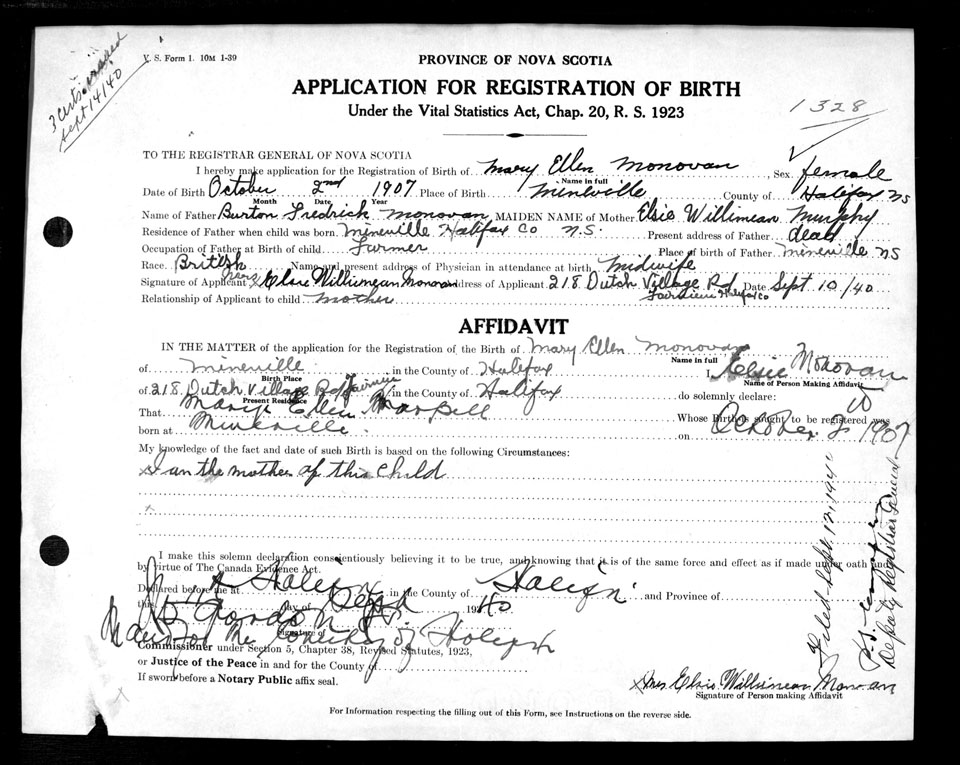 V. S. Form 1. 10M 1-39
3 Certs. issued
Sept 14/40
PROVINCE OF NOVA SCOTIA
APPLICATION FOR REGISTRATION OF BIRTH
Under the Vital Statistics Act, Chap. 20, R. S. 1923
1328
TO THE REGISTRAR GENERAL OF NOVA SCOTIA
I hereby make application for the Registration of Birth of Mary Ellen Monovan, Sex female
Name in full
Date of Birth October 2nd 1907 Place of Birth Mineville County of Halifax NS
Month Date Year
Name of Father Burton Fredrick Monovan, MAIDEN NAME of Mother Elsie Willimean Murphy
Residence of Father when child was born Mineville Halifax Co N.S. Present address of Father dead
Occupation of Father at Birth of child Farmer Place of birth of Father Mineville NS
Race. British Name and present address of Physician in attendance at birth midwife
Signature of Applicant Mrs Elsie Willimean Monovan Address of Applicant 218 Dutch Village Rd Date Sept 10/40
Fairview Halifax Co
Relationship of Applicant to child mother
AFFIDAVIT
IN THE MATTER of the application for the Registration of the Birth of Mary Ellen Monovan
Name in full
of Mineville in the County of Halifax I Elsie Monovan
Birth Place
Name of Person Making Affidavit
of 218 Dutch Village Rd Fairview in the County of Halifax do solemnly declare:
Present Residence
That Mary Ellen Whose Birth is sought to be registered was
born at Mineville on October 2 1907
My knowledge of the fact and date of such Birth is based on the following Circumstances:
I am the mother of this Child
I make this solemn declaration conscientiously believing it to be true, and knowing that it is of the same force and effect as if made under oath and
by virtue of The Canada Evidence Act.
Declared before me at Halifax in the County of Halifax and Province of
this day of Sept 1940
Gordon
Signature of
for the County of Halifax
Commissioner under Section 5, Chapter 38, Revised Statutes, 1923,
or Justice of the Peace in and for the County of
If sworn before a Notary Public affix seal.
Mrs Elsie Willimean Monovan
Signature of Person making Affidavit
For Information respecting the filling out of this Form, see Instructions on the reverse side.
Filed Sept. 12, 1940
Deputy Registrar General